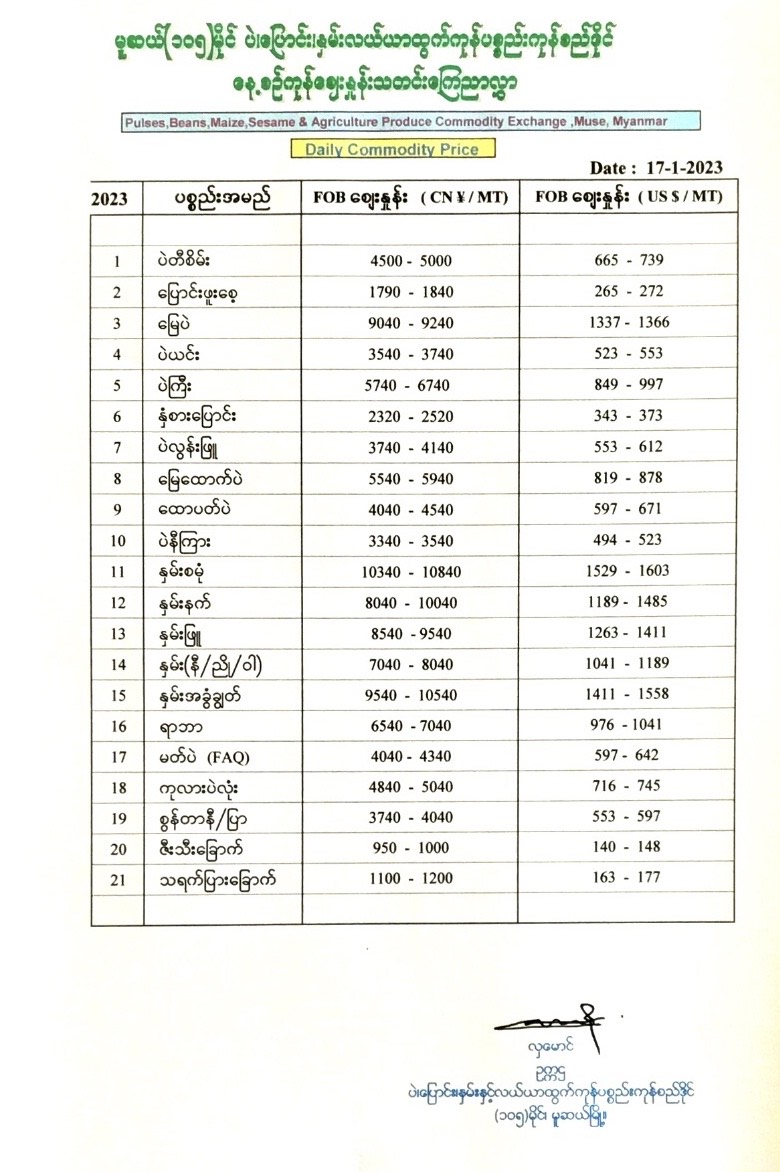 မူဆယ်(၁၀၅)မိုင် ပဲ၊ပြောင်း၊နှမ်းလယ်ယာထွက်ကုန်ပစ္စည်းကုန်စည်ဒိုင်
နေ့စဉ်ကုန်ဈေးနှုန်းသတင်းကြေညာလွှာ
Pulses,Beans,Maize,Sesame & Agriculture Produce Commodity Exchange ,Muse, Myanmar
Daily Commodity Price
Date : 17-1-2023
2023 ပစ္စည်းအမည် FOB ဈေးနှုန်း ( CN ¥ / MT) FOB ဈေးနှုန်း ( US $ / MT)
1 ပဲတီစိမ်း 4500 - 5000 665 - 739
2 ပြောင်းဖူးစေ့ 1790 - 1840 265 - 272
3 မြေပဲ 9040 - 9240 1337 - 1366
4 ပဲယင်း 3540 - 3740 523 - 553
5 ပဲကြီး 5740 - 6740 849 - 997
6 နှံစားပြောင်း 2320 - 2520 343 - 373
7 ပဲလွန်းဖြူ 3740 - 4140 553 - 612
8 မြေထောက်ပဲ 5540 - 5940 819 - 878
9 ထောပတ်ပဲ 4040 - 4540 597 - 671
10 ပဲနီကြား 3340 - 3540 494 - 523
11 နှမ်းစမုံ 10340 - 10840 1529 - 1603
12 နှမ်းနက် 8040 - 10040 1189 - 1485
13 နှမ်းဖြူ 8540 -9540 1263 - 1411
14 နှမ်း(နီ/ညို/ဝါ) 7040 - 8040 1041 - 1189
15 နှမ်းအခွံချွတ် 9540 - 10540 1411 - 1558
16 ရာဘာ 6540 -7040 976 -1041
17 မတ်ပဲ (FAQ) 4040 - 4340 597- 642
18 ကုလားပဲလုံး 4840 - 5040 716 - 745
19 စွန်တာနီ/ပြာ 3740 - 4040 553 - 597
20 ဇီးသီးခြောက် 950 - 1000 140 - 148
21 သရက်ပြားခြောက် 1100 - 1200 163 - 177
လှမောင်
ဥက္ကဌ
ပဲ၊ပြောင်း၊နှမ်းနှင့်လယ်ယာထွက်ကုန်ပစ္စည်းကုန်စည်ဒိုင်
(၁၀၅)မိုင်၊ မူဆယ်မြို့။